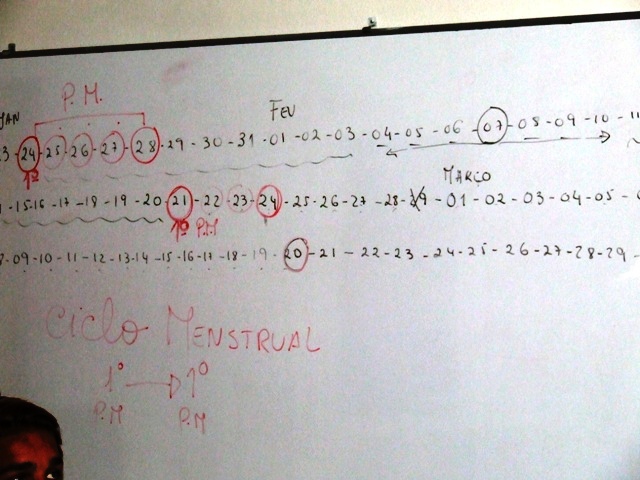 P.M.
JAN FEV
3 - 24 - 25 - 26 - 27 - 28 - 29 - 30 - 31 - 01 - 02 - 03 - 04 - 05 - 06 - 07 - 08 - 09 - 10 - 11
1º
MARÇO
- 15 - 16 - 17 - 18 - 19 - 20 - 21 - 22 - 23 - 24 - 25 - 26 - 27 - 28 - 29 - 01 - 02 - 03 - 04 - 05 -
1º P.M
- 09 - 10 - 11 - 12 - 13 - 14 - 15 - 16 - 17 - 18 - 19 - 20 - 21 - 22 - 23 - 24 - 25 - 26 - 27 - 28 - 29 -
Ciclo MENSTRUAL
1º 1º
P.M P.M